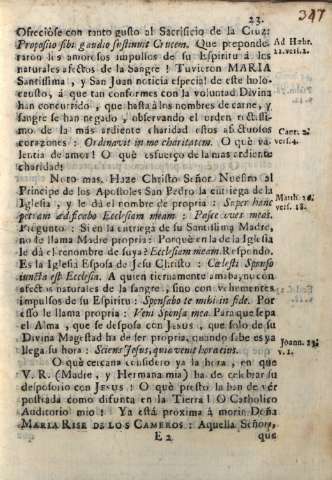 23.
347
Ofreciòse con tanto gusto al Sacrificio de la Cruz:
Proposito sibi gaudio sustinuit Crucem. Que preponde-
raron los amorosos impulsos de su Espiritu à los
naturales afectos de la Sangre! Tuvieron MARIA
Santissima, y San Juan noticia especial de este holo-
causto, à que tan conformes con la voluntad Divina
han concurrido, que hasta à los nombres de carne, y
sangre se han negado, observando el orden rectissi-
mo de la más ardiente charidad estos afectuosos
corazones: Ordinavit in me charitatem. O què va-
lentia de amor! O què esfuerço de la mas ardiente
charidad!
Noto mas. Haze Christo Señor Nuestro al
Principe de los Apostoles San Pedro la entrega de la
Iglesia, y le dà el nombre de propria: Super hanc
petram ædificabo Ecclesiam meam: Pasce oves meas.
Pregunto: Si en la entrega de su Santissima Madre,
no le llama Madre propria: Porquè en la de la Iglesia
le dà el renombre de suya? Ecclesiam meam. Respondo.
Es la Iglesia Esposa de Jesu Christo: Cœlesti Sponso
iuncta est Ecclesia. A quien tiernamente amaba, no con
afectos naturales de la sangre, sino con vehementes
impulsos de su Espiritu: Sponsabo te mihi in fide. Por
esso le llama propria: Veni Sponsa mea. Para que sepa
el Alma, que se desposa con JESUS, que solo de su
Divina Magestad ha de ser propria, quando sabe es ya
llega su hora: Sciens Jesus, quia venit hora eius.
O què cercana considero ya la hora, en que
V. R. (Madre, y Hermana mia) ha de celebrar su
desposorio con JESUS! O què presto la han de vèr
postrada como difunta en la Tierra! O Catholico
Auditorio mio! Ya està proxima à morir Doña
MARIA RISE DE LOS CAMEROS: Aquella Señora,
E 2 que
Ad Hæbr.
12. vers. 2.
Cant. 2.
vers. 4.
Matth. 16.
vers. 18.
Joann. 13.
v. 1.